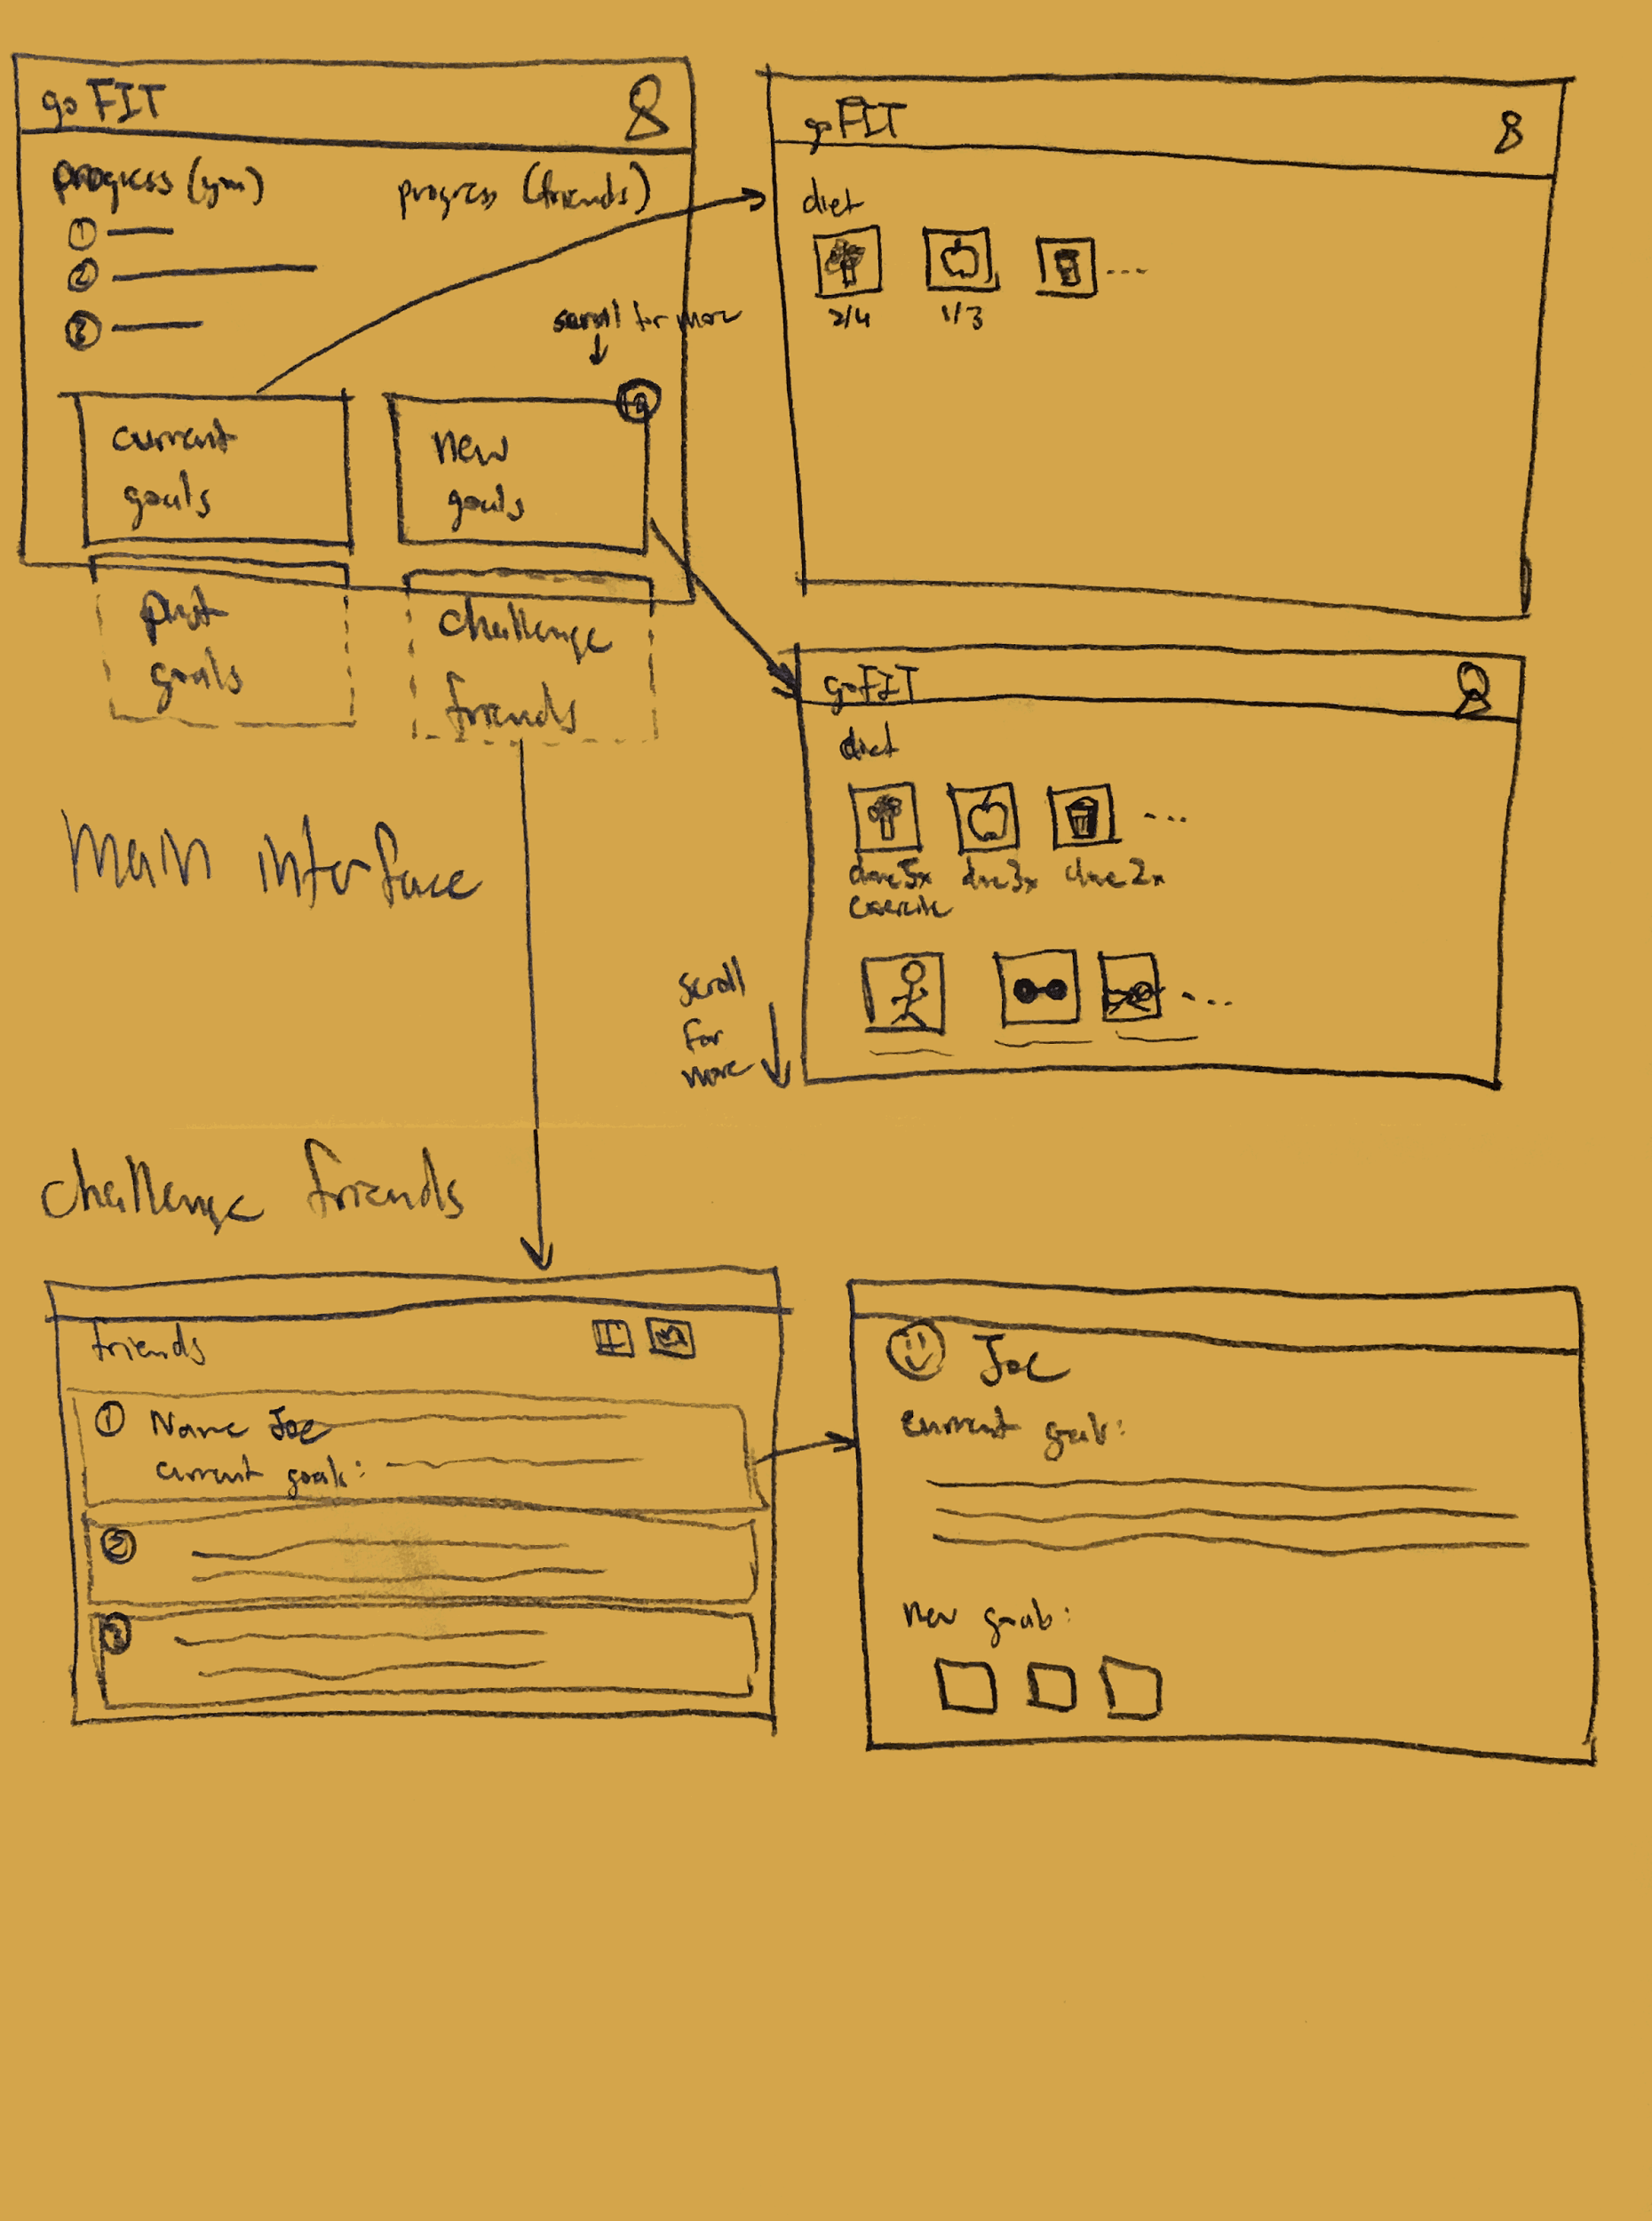 go FIT
progress (gym)
progress (friends)
1
2
3
scroll for more
current
goals
new
goals
past
goals
challenge
friends
go FIT
diet
2/4
1/3
...
go FIT
diet
...
done 5x
done 3x
done 2x
exercise
...
scroll
for
more
main interface
challenge friends
friends
1 Name Joe
current goals:
2
3
Joe
current goals:
new goals: